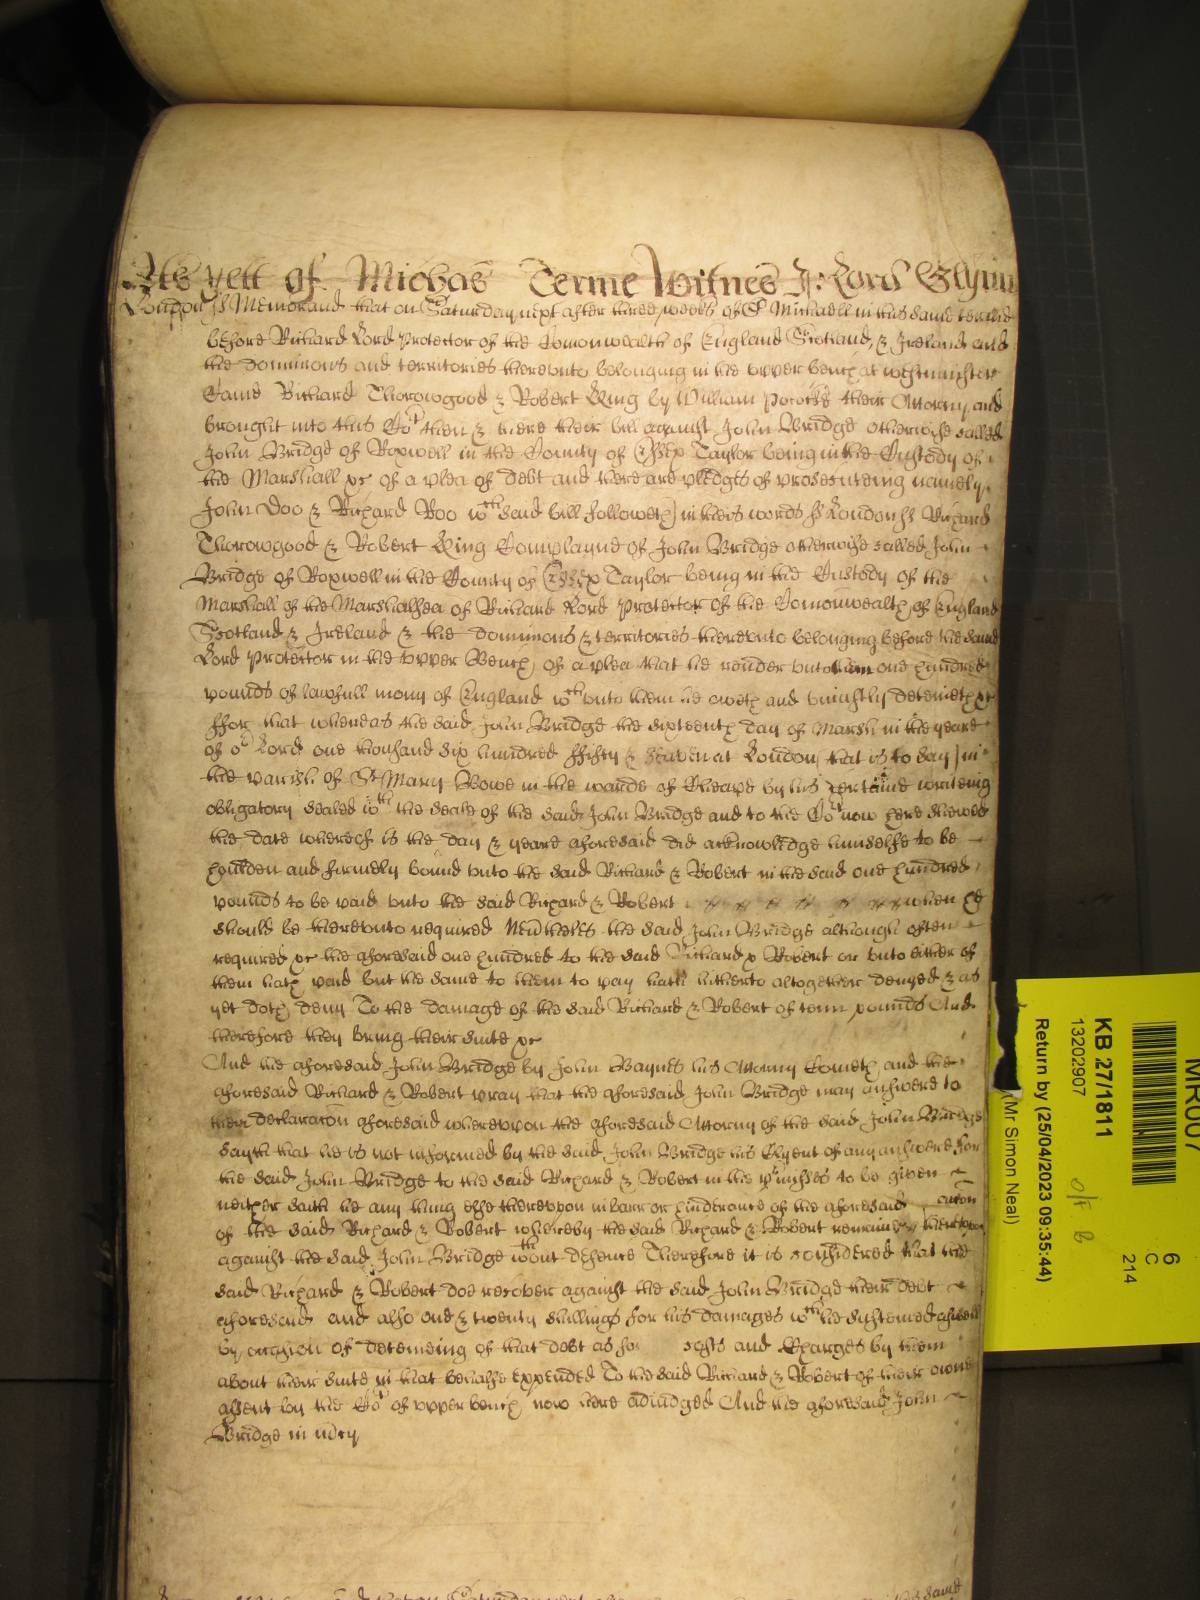 As yett of Michas Terme Witnes J: Lord Glynn
London ss Memorand that on Saturday next after three weeks of St Michaell in this same terme
before Richard Lord Protector of the Comonwealth of England Scotland, & Ireland and
the dominions and territories thereunto belonging in the upper bench at westminster
Came Richard Thorowgood & Robert King by William Pocock their Attorny and
brought into this Cort then & there their bill against John Bridge otherwise called
John Bridge of Roxwell in the County of Essex Taylor being in the Custody of
the Marshall xc of a plea of debt and there are pledges of prosecuteing namely
John Doo & Richard Roo wch said bill followeth in theis words ss London ss Richard
Thorowgood & Robert King Complayne of John Bridge otherwise called John
Bridge of Roxwell in the County of Essex Taylor being in the Custody of the
Marshall of the Marshalsea of Richard Lord Protector of the Comonwealth of England
Scotland & Ireland & the dominions & territories thereunto belonging before the said
Lord Protector in the upper Bench, of a plea that he render unto them one hundred
pounds of lawfull mony of England wch unto them he oweth and uniustly deteineth xc
ffor that whereas the said John Bridge the sixteenth day of March in the yeare
of or Lord one thousand six hundred ffifty & seaven at London that is to say in
the parish of St Mary Bowe in the warde of Cheape by his certaine writeing
obligatory sealed wth the seale of the said John Bridge and to the Cort now here shewed
the date whereof is the day & yeare aforesaid did acknowledge himselfe to be
houlden and firmely bound unto the said Richard & Robert in the said one hundred
pounds to be paid unto the said Richard & Robert when he
should be thereunto required Neutheles the said John Bridge although often
required xc the aforesaid one hundred to the said Richard & Robert or unto either of
them hath paid but the same to them to pay hath hitherto altogether denyed & as
yet doth deny To the damage of the said Richard & Robert of tenn pounds And
therefore they bring their suite xc
And the aforesaid John Bridge by John Baynes his Attorny Cometh and the
aforesaid Richard & Robert pray that the aforesaid John Bridge may answere to
their declaraton aforesaid whereupon the aforesaid Attorny of the said John Bridge
sayth that he is not informed by the said John Bridge his Clyent of any answere for
the said John Bridge to the said Richard & Robert in the pmisses to be given
neither saith he any thing else thereupon in barr or hinderance of the aforesaid accon
of the said Richard & Robert whereby the said Richard & Robert remaine thereupon
against the said John Bridge wthout defence Therefore it is considered that the
said Richard & Robert doe recover against the said John Bridge their debt
aforesaid and also one & twenty shillings for his damages wch he susteined aswell
by occasion of deteineing of that debt as for costs and Charges by them
about their suite in that behalfe expended To the said Richard & Robert of their owne
assent by the Cort of upper bench now here adiudged And the aforesaid John
Bridge in mcy
KB 27/1811
13202907
Return by (25/04/2023 09:35:44)
(Mr Simon Neal)
MR007
6
C
214